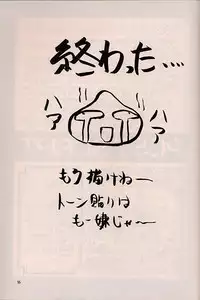 終わった‥‥
ハア
ハア
もう描けねー
トーン貼りは
もー嫌じゃ〜